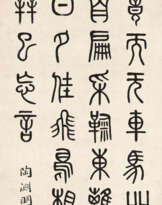 竟而无車馬
自偏采鞠東離
日夕佳飛鳥相
辨已忘言
陶淵明